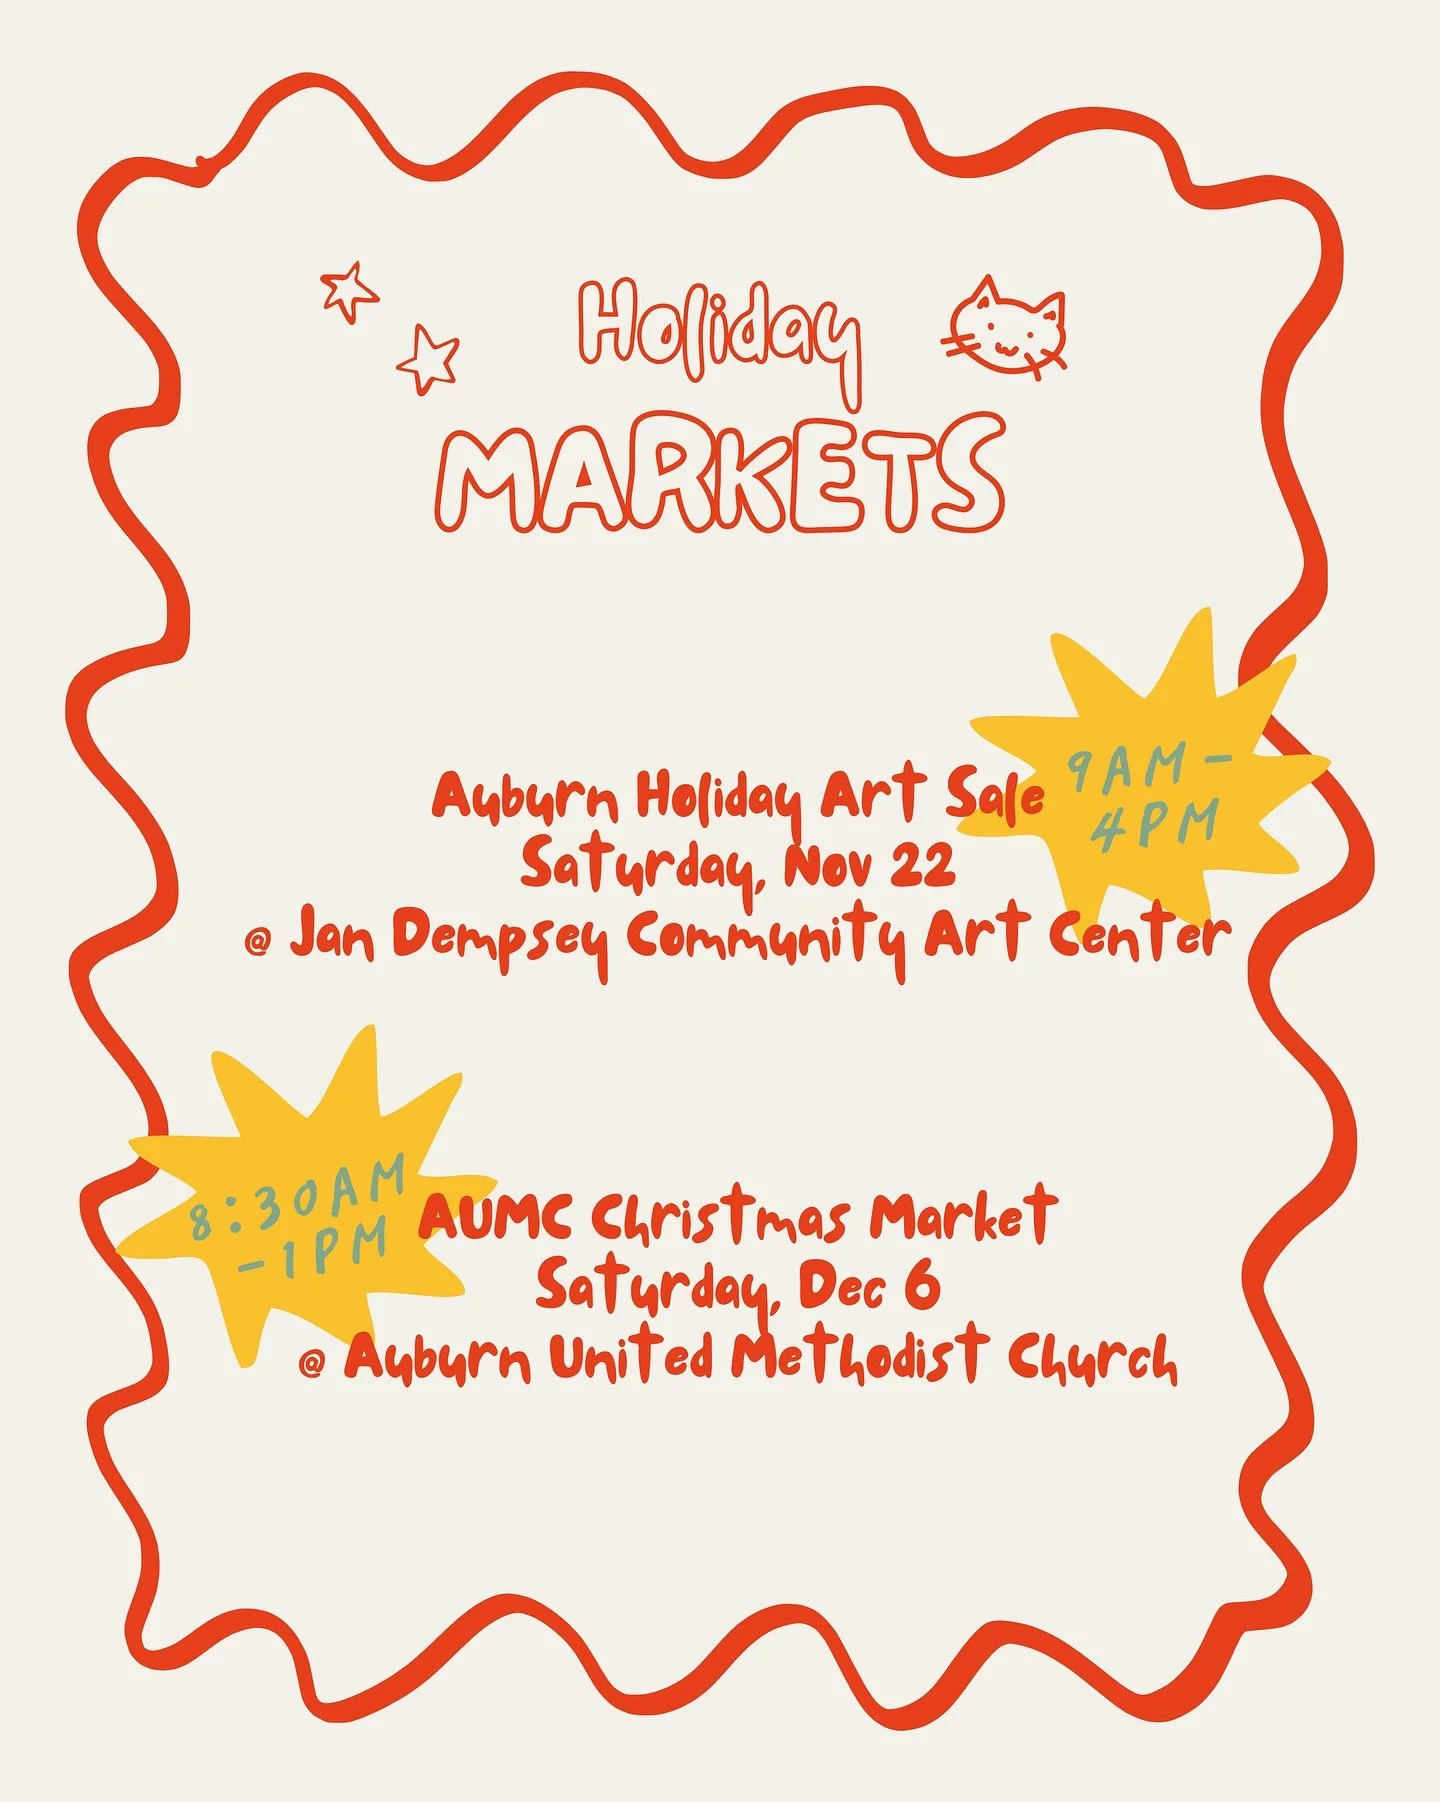 Holiday
MARKETS
9AM-
4PM
Auburn Holiday Art Sale
Saturday, Nov 22
@ Jan Dempsey Community Art Center
8:30AM
-1PM
AUMC Christmas Market
Saturday, Dec 6
@ Auburn United Methodist Church